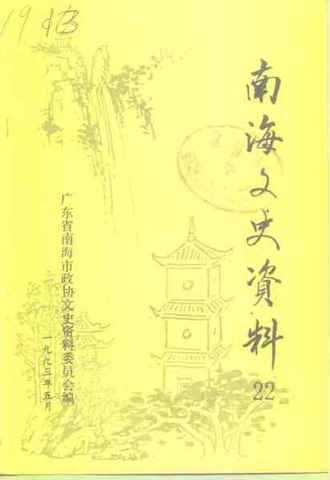 南海文史資料
22
广东省南海市政协文史资料委员会编
一九九三年五月